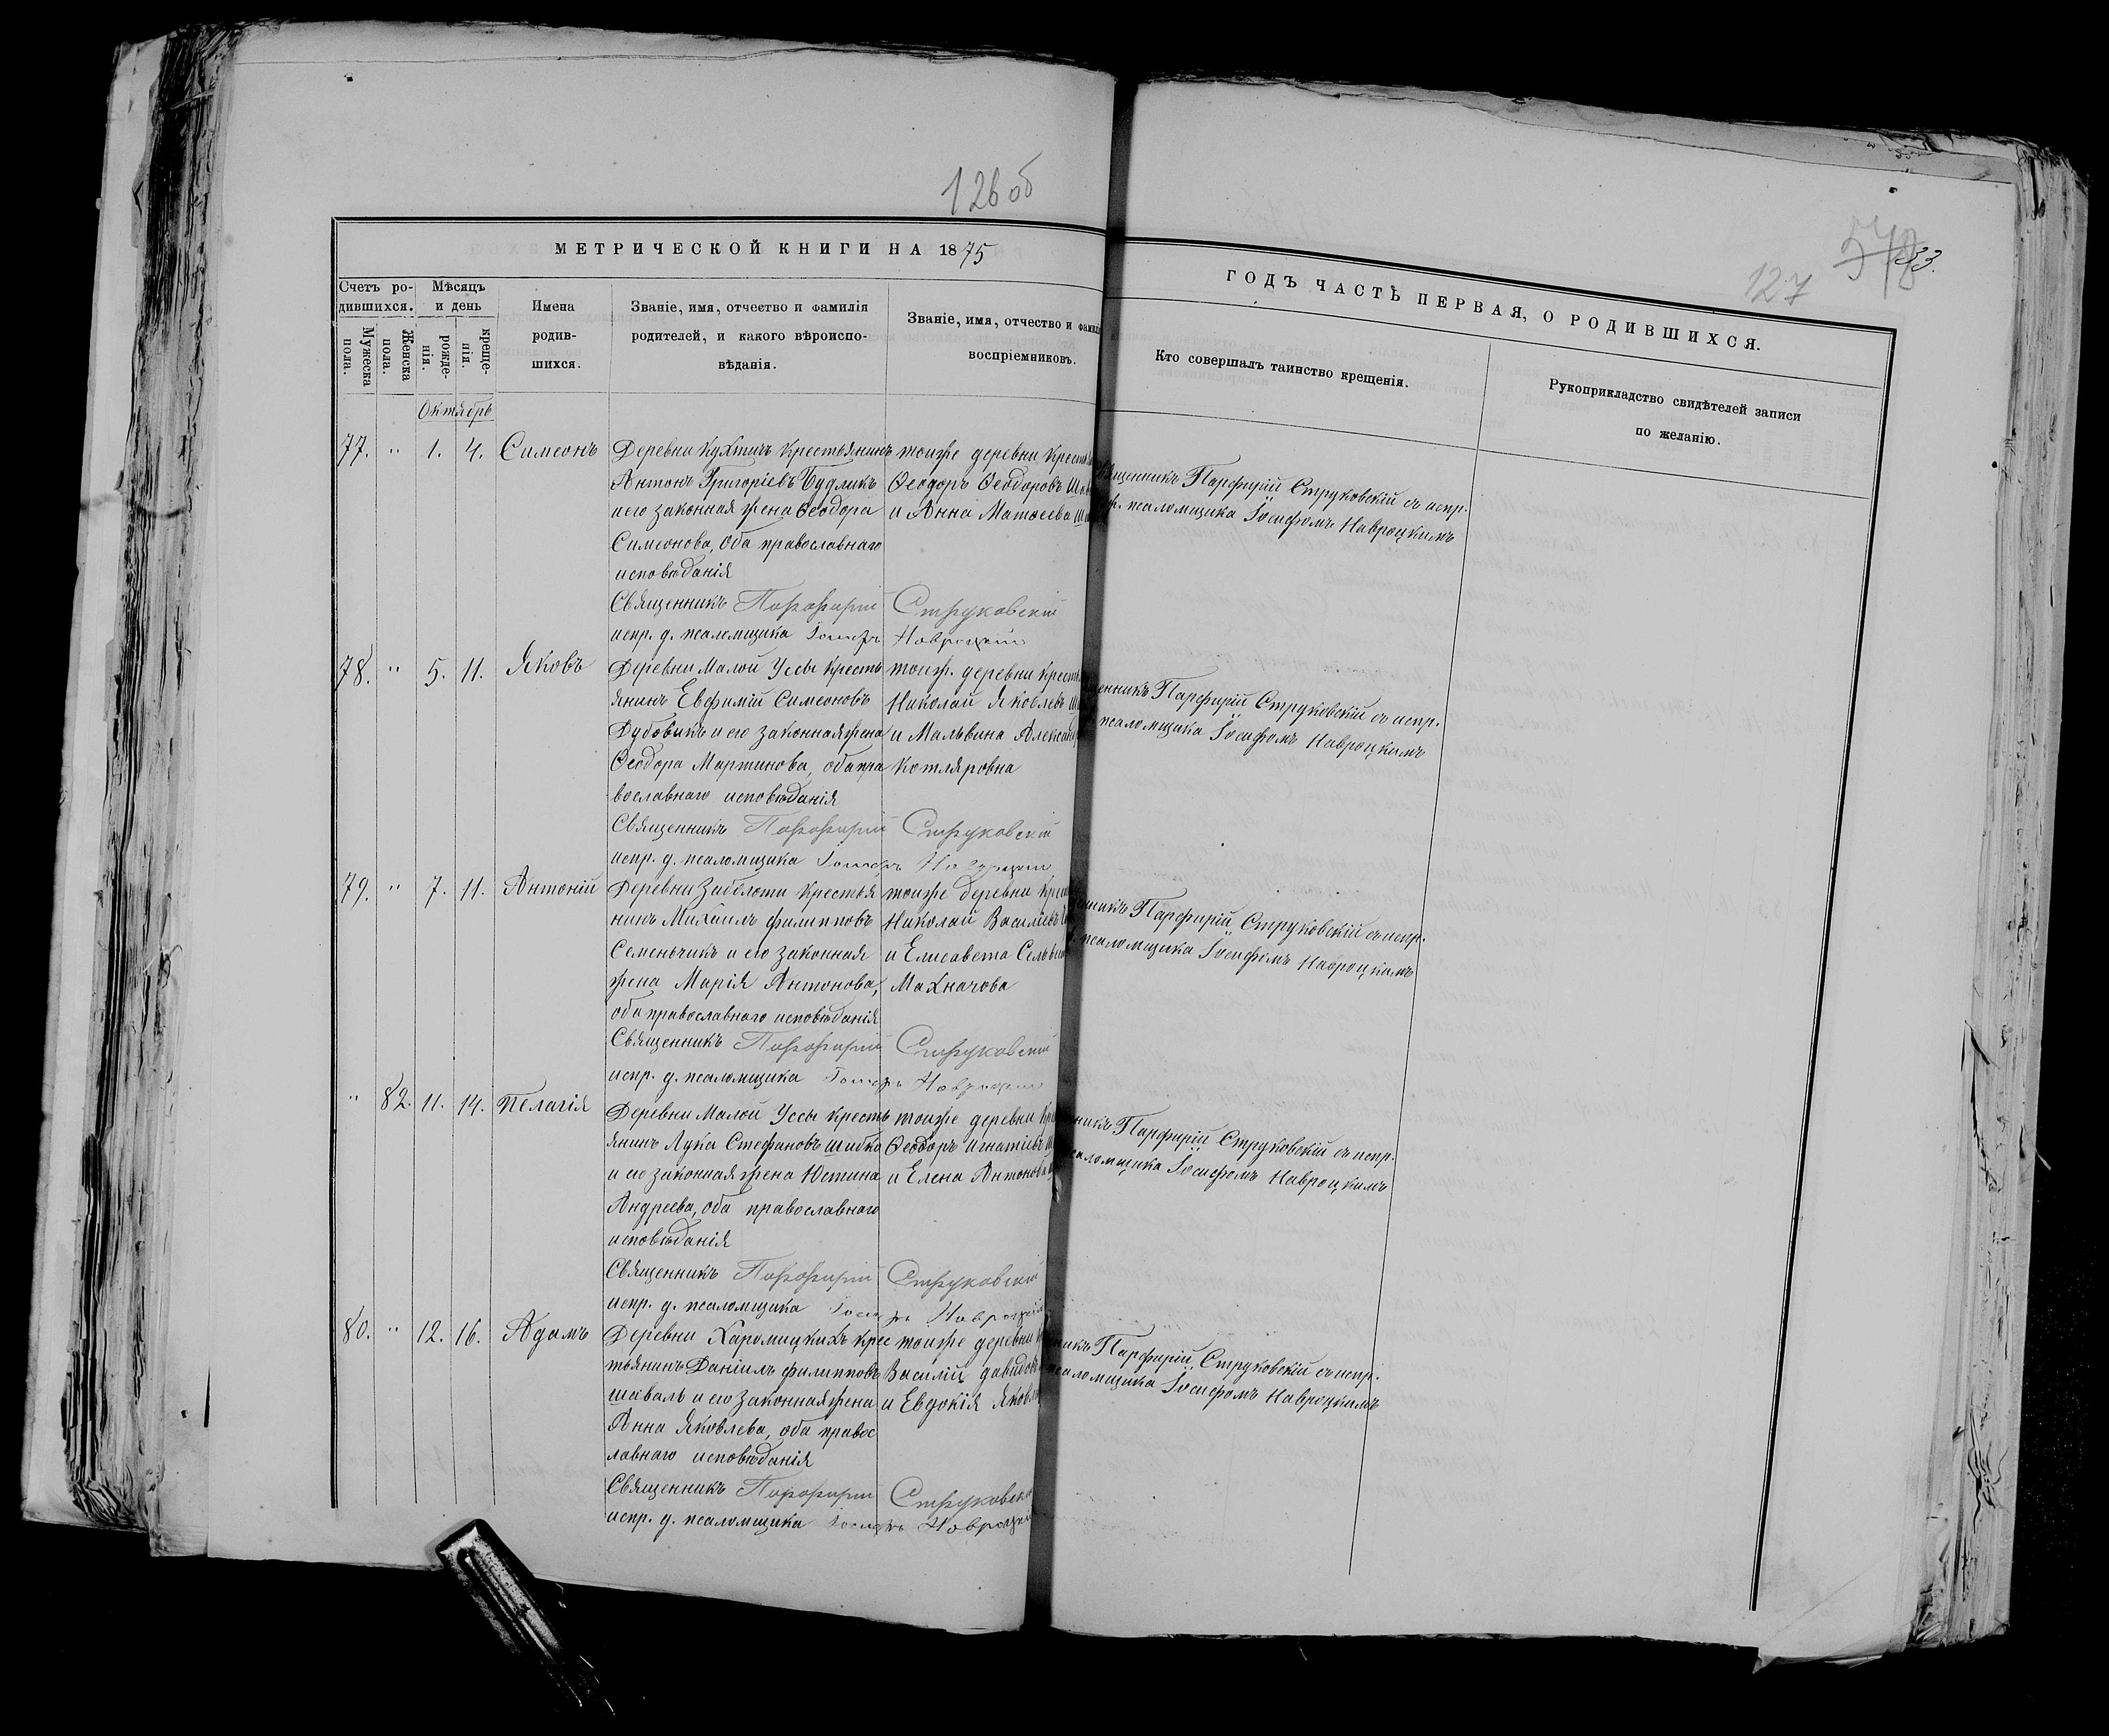 126 об
МЕТРИЧЕСКОЙ КНИГИ НА 1875
ГОДЪ ЧАСТЬ ПЕРВАЯ, О РОДИВШИХСЯ.
127
33.
Счетъ ро-
дившихся.
Мужеска
пола.
Женска
пола.
Мѣсяцъ
и день
рожде-
нія.
креще-
нія.
Имена
родив-
шихся.
Званіе, имя, отчество и фамилія
родителей, и какого вѣроиспо-
вѣданія.
Званіе, имя, отчество и фамилі
воспріемниковъ.
Кто совершалъ таинство крещенія.
Рукоприкладство свидѣтелей записи
по желанію.
Октябрь
77. " 1. 4. Симеонъ
Деревни Кухтичъ крестьянинъ
Антонъ Григоріевъ Будликъ
и его законная жена Ѳеодора
Симеонова, оба православнаго
исповѣданія
Священникъ Порфирій Струковскій
испр. д. псаломщика Іосифъ Навроцкій
тоиже деревни крестья
Ѳеодоръ Ѳеодоровъ
и Анна Матѳеева
вященникъ Парфирій Струковскій съ испр.
псаломщика Іосифомъ Навроцкимъ
78. " 5. 11. Яковъ
Деревни Малой Уссы кресть
янинъ Евфимій Симеоновъ
Дубовикъ и его законная жена
Ѳеодора Мартинова, оба пра
вославнаго исповѣданія
Священникъ Порфирій Струковскій
испр. д. псаломщика Іосифъ Навроцкій
тоиж. деревни крестья
Николай Яковлевъ
и Мальвина Александр
Котляровна
щенникъ Парфирій Струковскій съ испр.
псаломщика Іосифомъ Навроцкимъ
79. " 7. 11. Антоній
Деревни Заболоти крестья
нинъ Михаилъ Филипповъ
Семеньчикъ и его законная
жена Марія Антонова,
оба православнаго исповѣданія
Священникъ Порфирій Струковскій
испр. д. псаломщика Іосифъ Навроцкій
тоиже деревни крес
Николай Васильевъ
и Елисавета
Махначова
нникъ Парфирій Струковскій съ испр.
псаломщика Іосифомъ Навроцкимъ
" 82. 11. 14. Пелагія
Деревни Малой Уссы кресть
янинъ Лука Стефановъ Шибко
и его законная жена Юстина
Андреева, оба православнаго
исповѣданія
Священникъ Порфирій Струковскій
испр. д. псаломщика Іосифъ Навроцкій
тоиже деревни кр
Ѳеодоръ Игнатіевъ
и Елена Антонова
никъ Парфирій Струковскій съ испр.
саломщика Іосифомъ Навроцкимъ
80. " 12. 16. Адамъ
Деревни Харомицкихъ крес
тьянинъ Даніилъ Филипповъ
Шаваль и его законная жена
Анна Яковлева, оба правос
лавнаго исповѣданія
Священникъ Порфирій Струковскій
испр. д. псаломщика Іосифъ Навроцкій
тоиже деревни
Василій Давидов
и Евдокія Яковл
никъ Парфирій Струковскій съ испр.
саломщика Іосифомъ Навроцкимъ